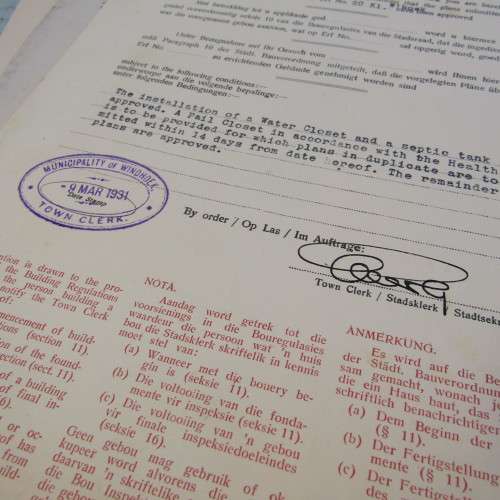 20 XI.
word u hiermee
Unter Bezugnahme auf Ihr Gesuch vom
wird Ihnen
Paragraph 10 der Städt. Bauverordnung mitgeteilt, daß die vorgelegten Pläne
Erf No.
zu errichtenden Gebäude genehmigt worden sind
subject to the following conditions:—
onderworpe aan die volgende bepalinge:—
unter folgenden Bedingungen:—
The installation of a Water Closet and a septic tank
approved. A Pail Closet in accordance with the Health
is to be provided for which plans in duplicate are to
mitted within 14 days from date hereof. The remainder
plans are approved.
MUNICIPALITY OF WINDHOEK
9 MAR 1931
Date Stamp
TOWN CLERK.
By order / Op Las / Im Auftrage:
Town Clerk / Stadsklerk / Stadtsek
tion is drawn to the pro-
the Building Regulations
the person building a
notify the Town Clerk
of:
mencement of build-
tions (section 11).
tion of the found-
ection (sect. 11).
of a building
of final in-
6).
NOTA.
Aandag word getrek tot die
voorsienings in die Bouregulasies
waardeur die persoon wat 'n huis
bou die Stadsklerk skriftelik in kennis
moet stel van:
(a) Wanneer met die bouery be-
gin is (seksie 11).
(b) Die voltooiing van die fonda-
mente vir inspeksie (seksie 11).
(c) Die voltooiing van 'n gebou
vir finale inspeksiedoeleindes
(seksie 16).
Geen gebou mag gebruik of ok-
kupeer word alvorens die
daarvan 'n skriftelike
die Bou
die gebou
ANMERKUNG.
Es wird auf die
der Städt. Bauverordnun
sam gemacht, wonach
die ein Haus baut, das
schriftlich benachrichtigen
(a) Dem Beginn der
(§ 11).
(b) Der Fertigstellung
mente (§ 11).
(c) Der Fertigstell